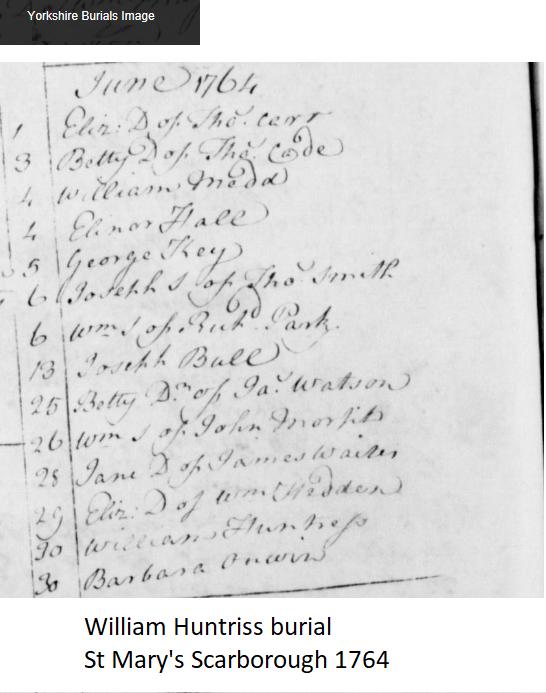 Yorkshire Burials Image
June 1764
1 Eliz: D of Tho: Carr
3 Betty D of Tho: Cade
4 William Medd
4 Elinor Hall
5 George Key
6 Joseph S of Tho: Smith
6 Wm S of Rich: Park
13 Joseph Bull
25 Betty Dr. of Ja: Watson
26 Wm S of John
28 Jane D of James
29 Eliz: D of Wm
30 William Huntress
30 Barbara
William Huntriss burial
St Mary's Scarborough 1764